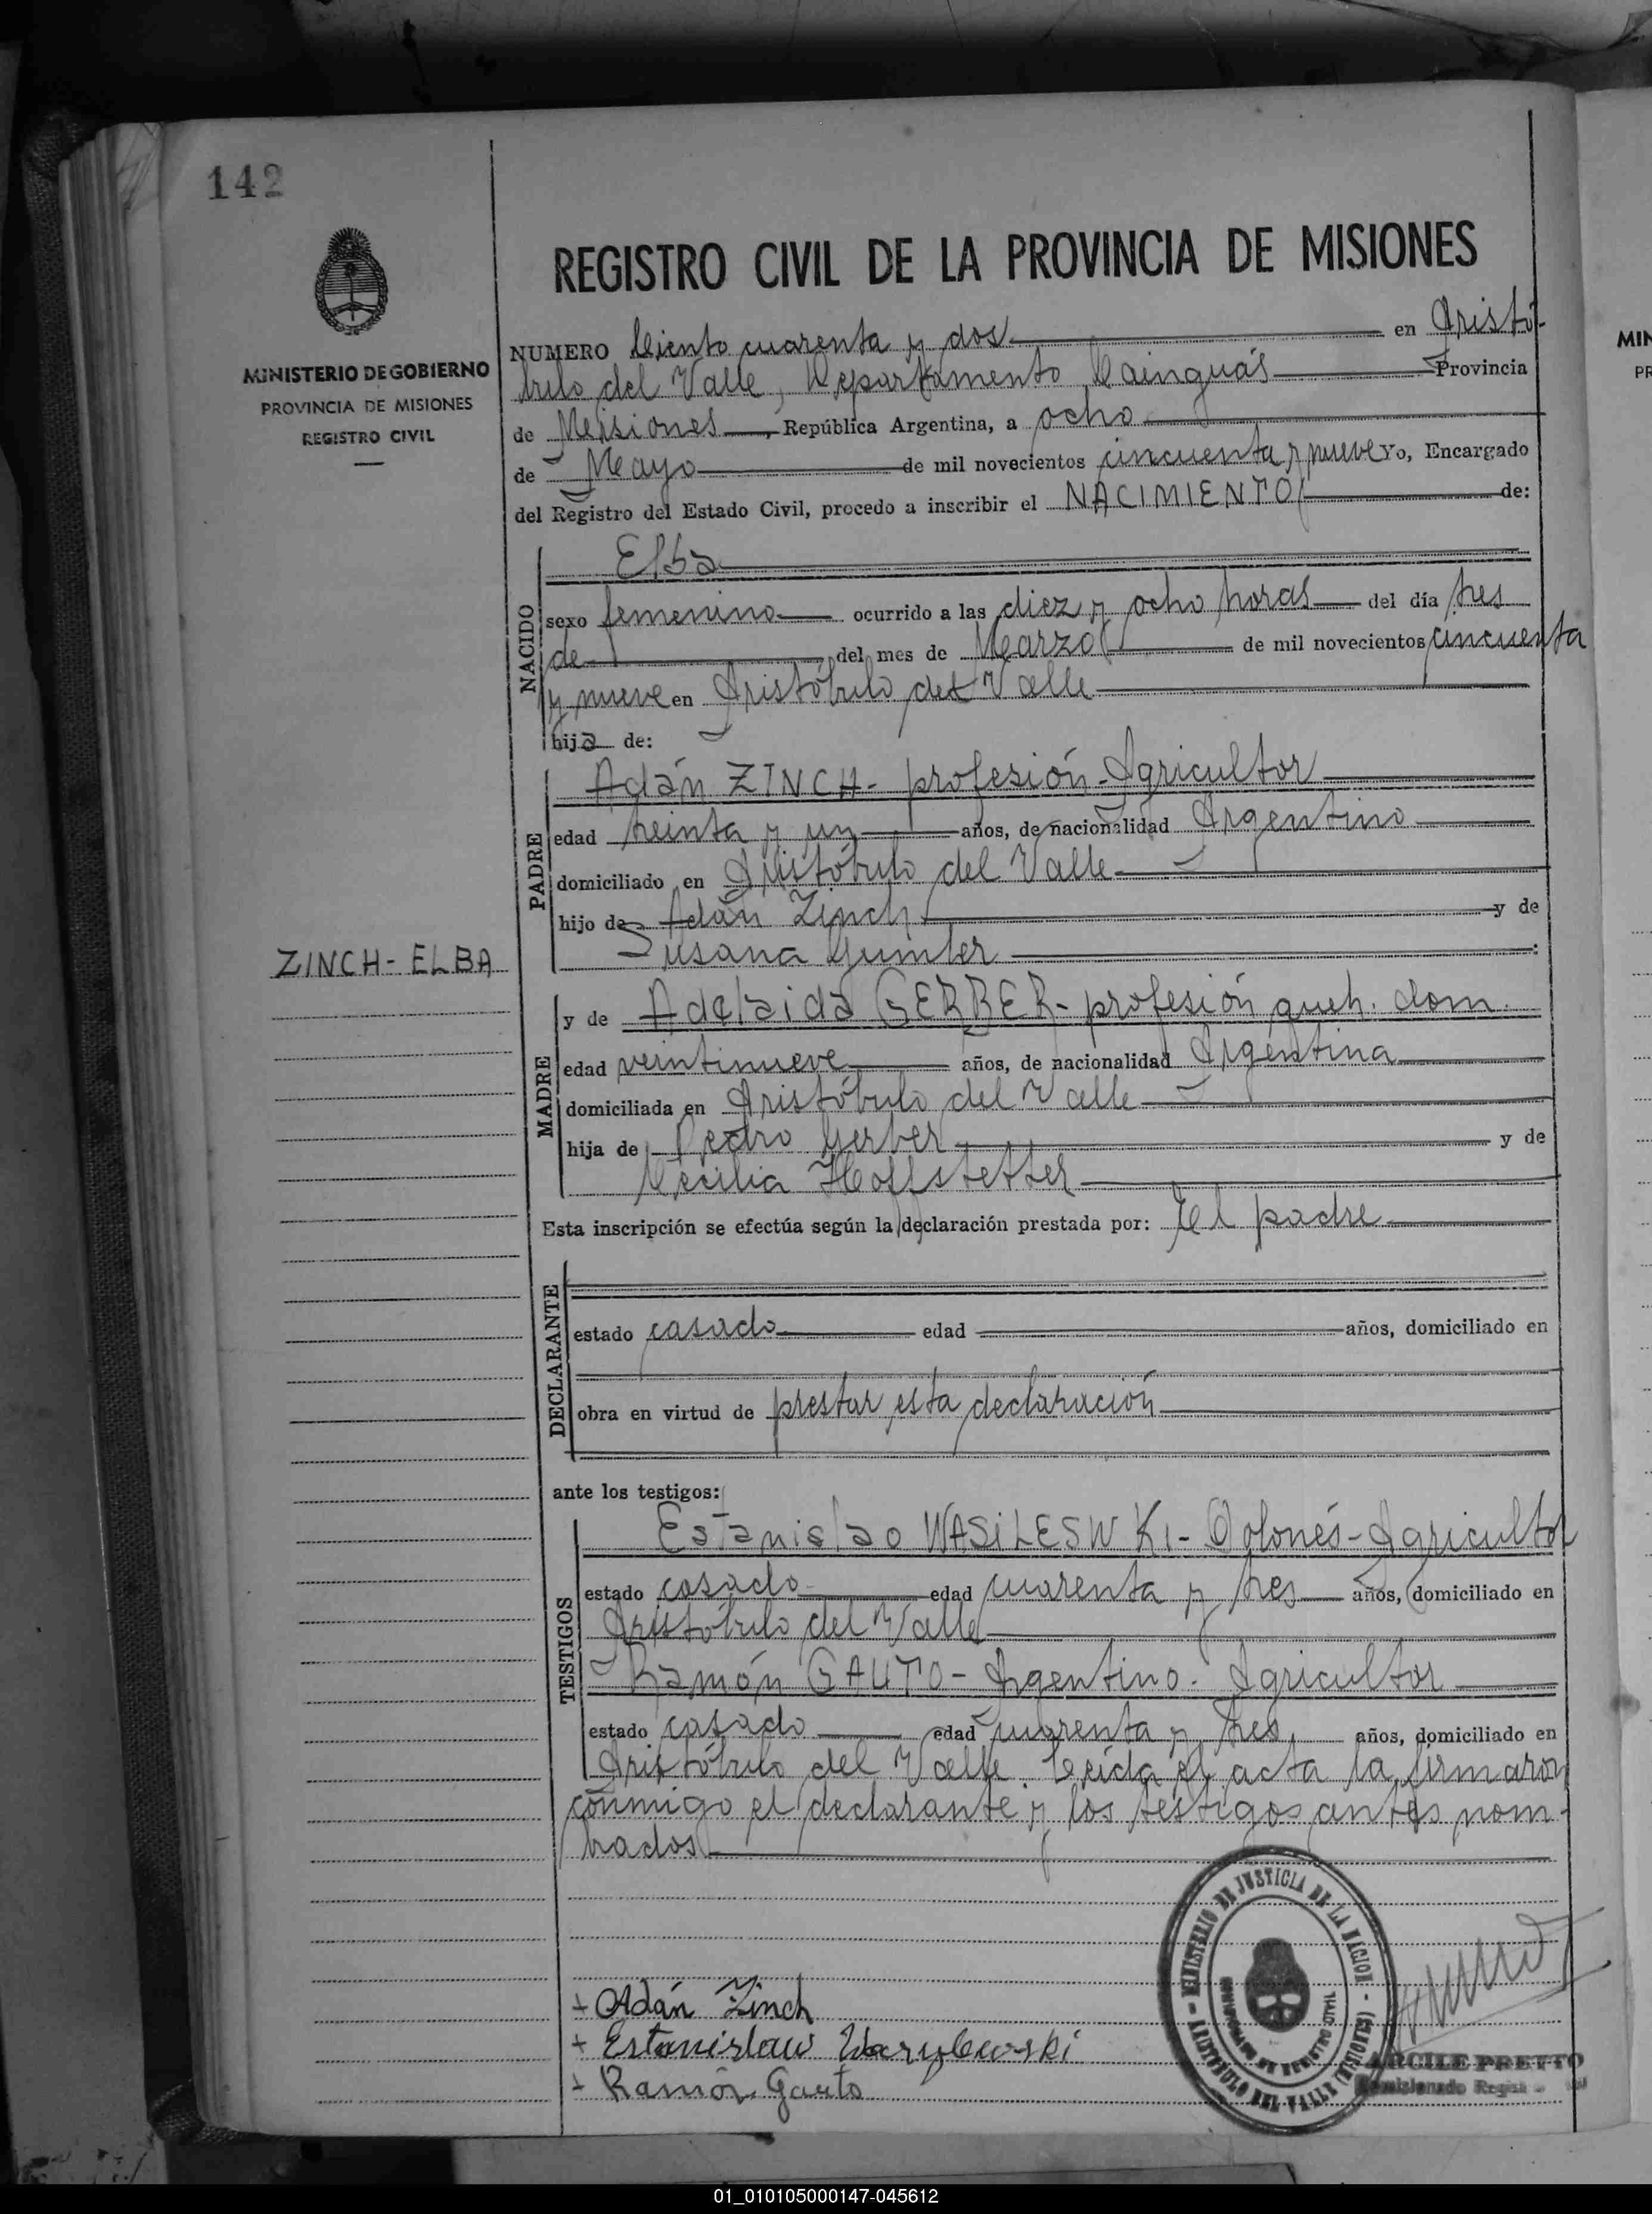 142
MINISTERIO DE GOBIERNO
PROVINCIA DE MISIONES
REGISTRO CIVIL
REGISTRO CIVIL DE LA PROVINCIA DE MISIONES
NUMERO Ciento cuarenta y dos en Aristó-
bulo del Valle, Departamento Cainguás Provincia
de Misiones, República Argentina, a ocho
de Mayo de mil novecientos cincuenta y nueve Yo, Encargado
del Registro del Estado Civil, procedo a inscribir el NACIMIENTO de:
NACIDO
Elba
sexo femenino ocurrido a las diez y ocho horas del día tres
de del mes de Marzo de mil novecientos cincuenta
y nueve en Aristóbulo del Valle
hija de:
PADRE
Adán ZINCH- profesión-Agricultor
edad treinta y un años, de nacionalidad Argentino
domiciliado en Aristóbulo del Valle
hijo de Adán Zinch y de
Susana Gunter
ZINCH- ELBA
MADRE
y de Adelaida GERBER- profesión queh. dom.
edad veintinueve años, de nacionalidad Argentina
domiciliada en Aristóbulo del Valle
hija de Pedro Gerber y de
Cecilia Hoffstetter
Esta inscripción se efectúa según la declaración prestada por: El padre
DECLARANTE
estado casado edad años, domiciliado en
obra en virtud de prestar esta declaración
ante los testigos:
TESTIGOS
Estanislao WASILESWKI- Polonés-Agricultor
estado casado edad cuarenta y tres años, domiciliado en
Aristóbulo del Valle
Ramón GAUTO- Argentino- Agricultor
estado casado edad cuarenta y tres años, domiciliado en
Aristóbulo del Valle. Leída el acta la firmaron
conmigo el declarante y los testigos antes nom-
brados
+ Adán Zinch
+ Estanislaw
+ Ramón Gauto
MINISTERIO DE JUSTICIA DE LA NACION
ARISTOBULO DEL VALLE (MISIONES)
ARCILE PRETTO
01_010105000147-045612